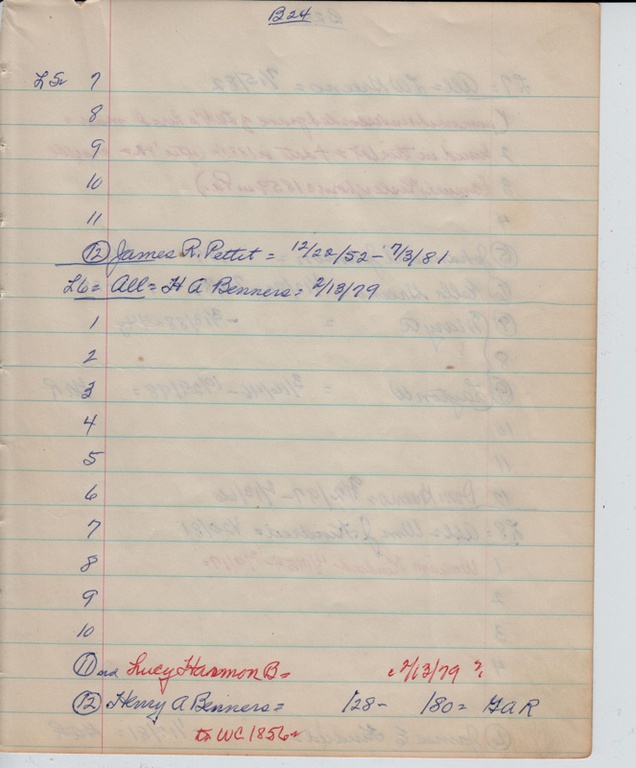 B24
L5= 7
8
9
10
11
12 James R. Pettet = 12/22/52 - 7/3/81
L6= All= H A Benners = 2/13/79
1
2
3
4
5
6
7
8
9
10
11 Lucy Harmon B= 2/13/79 ?
12 Henry A Benners= /28- /80= GAR
WC 1856